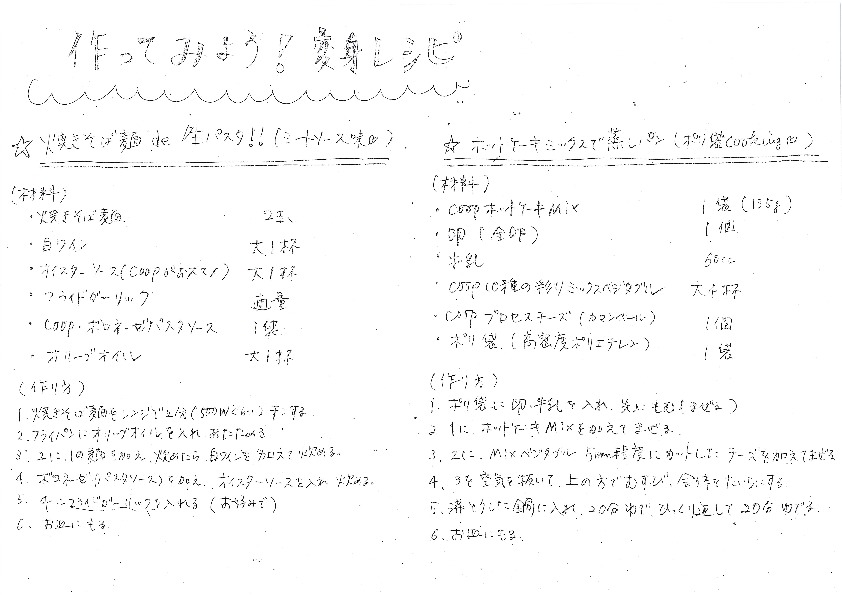 作ってみよう！変身レシピ
☆ 焼きそば麺 de 生パスタ!!（ミートソース味）
（材料）
・焼きそば麺 2玉
・白ワイン 大1杯
・オイスターソース（COOPがおススメ！） 大1杯
・フライドガーリック 適量
・COOP・ボロネーゼパスタソース 1袋
・オリーブオイル 大1杯
（作り方）
1. 焼きそば麺をレンジで2分（500Wくらい）チンする。
2. フライパンにオリーブオイルを入れ あたためる
3. 2に、1の麺を加え、炒めたら、白ワインを加えて炒める。
4. ボロネーゼ（パスタソース）を加え、オイスターソースを入れ 炒める。
5. 4にフライドガーリックを入れる（お好みで）
6. お皿にもる
☆ ホットケーキミックスで蒸しパン（ポリ袋Cooking）
（材料）
・COOPホットケーキMix 1袋（135g）
・卵（全卵） 1個
・牛乳 50cc
・COOP 10種の彩りミックスベジタブル 大4杯
・COOP プロセスチーズ（カマンベール） 1個
・ポリ袋（高密度ポリエチレン） 1袋
（作り方）
1. ポリ袋に 卵、牛乳を入れ、もむ！まぜる）
2. 1に、ホットケーキMixを加えてまぜる。
3. 2に、Mixベジタブル 5mm程度にカットしたチーズを加えてまぜる
4. 3を空気を抜いて、上の方でむすび、全体をたいらにする。
5. 沸とうした鍋に入れ、20分ゆで、ひっくり返して20分ゆでる。
6. お皿にもる。